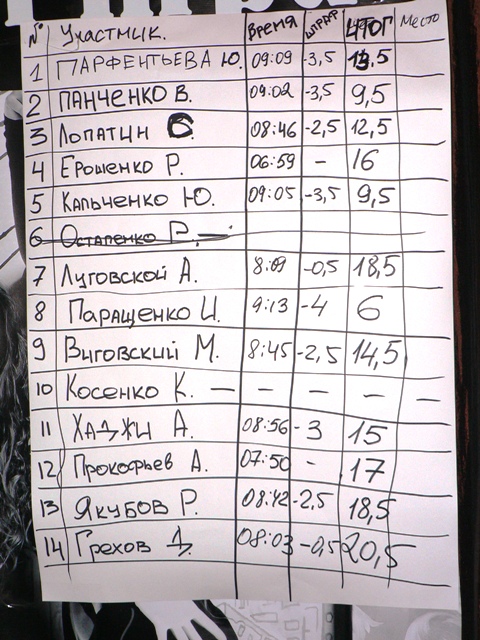 № Участник. ВРЕМЯ ШТРАФ ИТОГ Место
1 ПАРФЕНТЬЕВА Ю. 09:09 -3,5 13,5
2 ПАНЧЕНКО В. 09:02 -3,5 9,5
3 Лопатин С. 08:46 -2,5 12,5
4 Ерошенко Р. 06:59 - 16
5 Кальченко Ю. 09:05 -3,5 9,5
6 Остапенко Р. -
7 Луговской А. 8:09 -0,5 18,5
8 Паращенко И. 9:13 -4 6
9 Виговский М. 8:45 -2,5 14,5
10 Косенко К. - - - - -
11 Хаджи А. 08:56 -3 15
12 Прокофьев А. 07:50 - 17
13 Якубов Р. 08:42 -2,5 18,5
14 Грехов Д. 08:03 -0,5 20,5